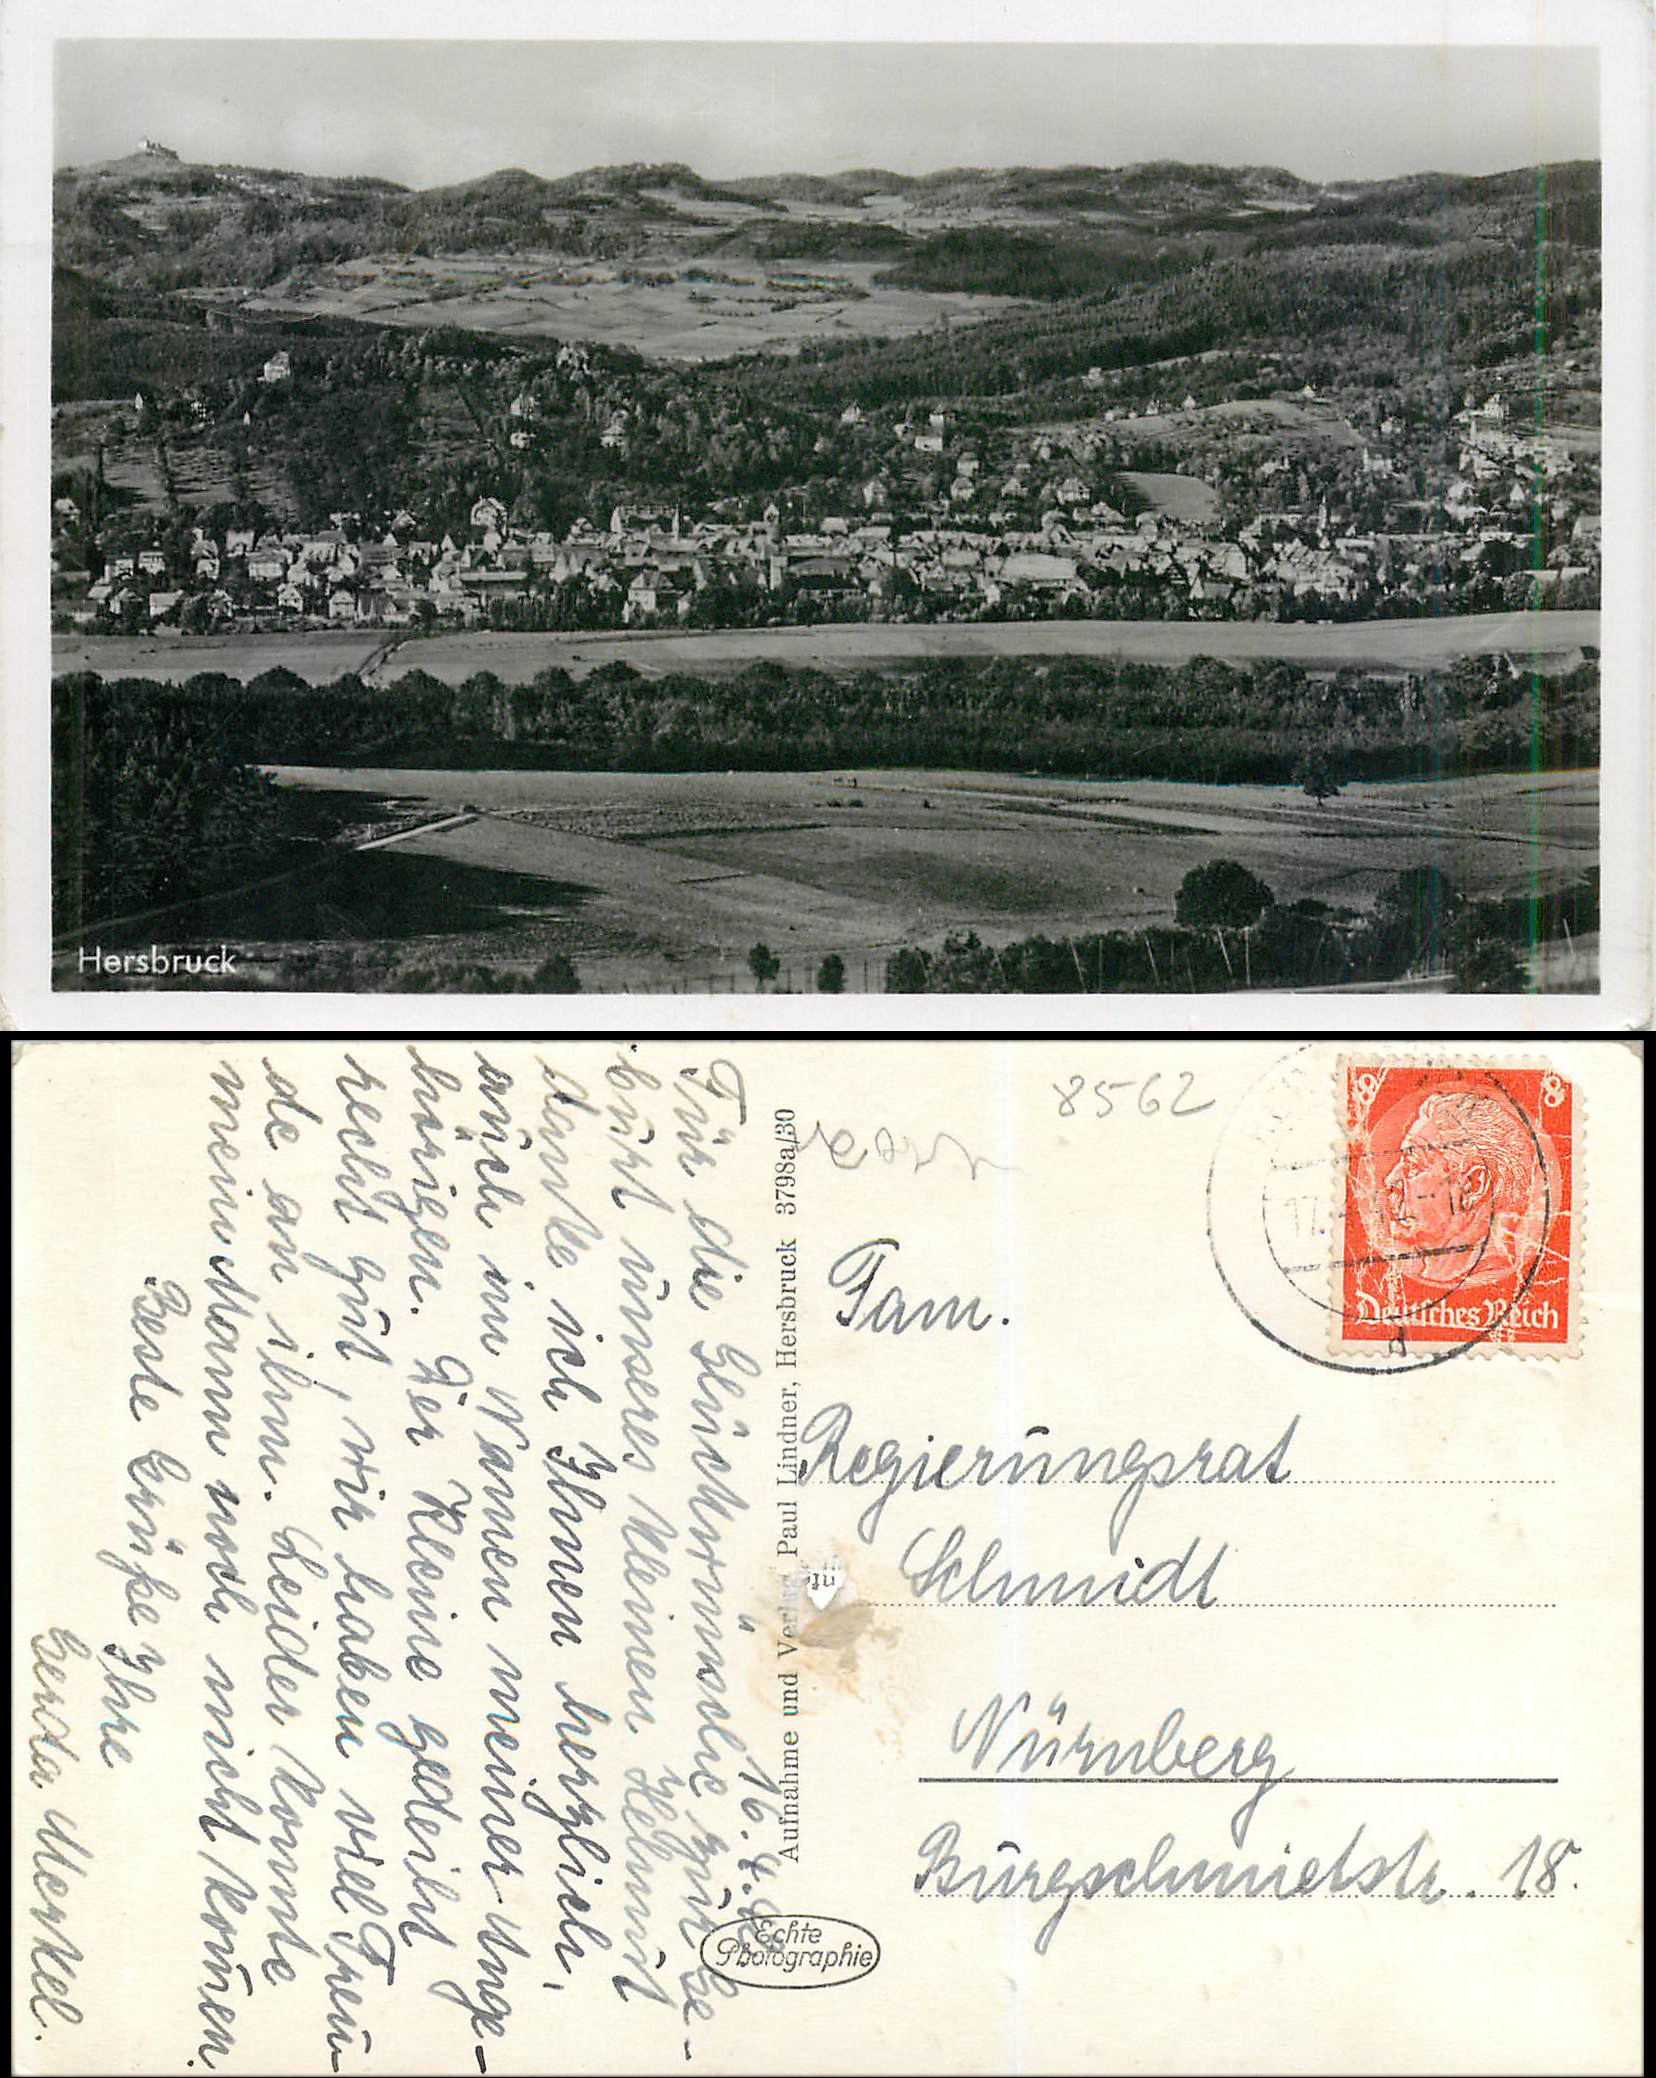 Hersbruck
8562
8 8
17. -18
Deutsches Reich
d
Fam.
Regierungsrat
Schmidt
Nürnberg
Burgschmietstr. 18.
Aufnahme und Verlag Paul Lindner, Hersbruck 3798a/30
Echte
Photographie
16. 4.
Für die Glückwünsche zur Ge-
burt unseres kleinen Helmut
danke ich Ihnen herzlich,
auch im Namen meiner Ange-
hörigen. Der Kleine gedeiht
recht gut, wir haben viel Freu-
de an ihm. Leider konnte
mein Mann noch nicht kom̄en.
Beste Grüße Ihre
Gerda Merkel.